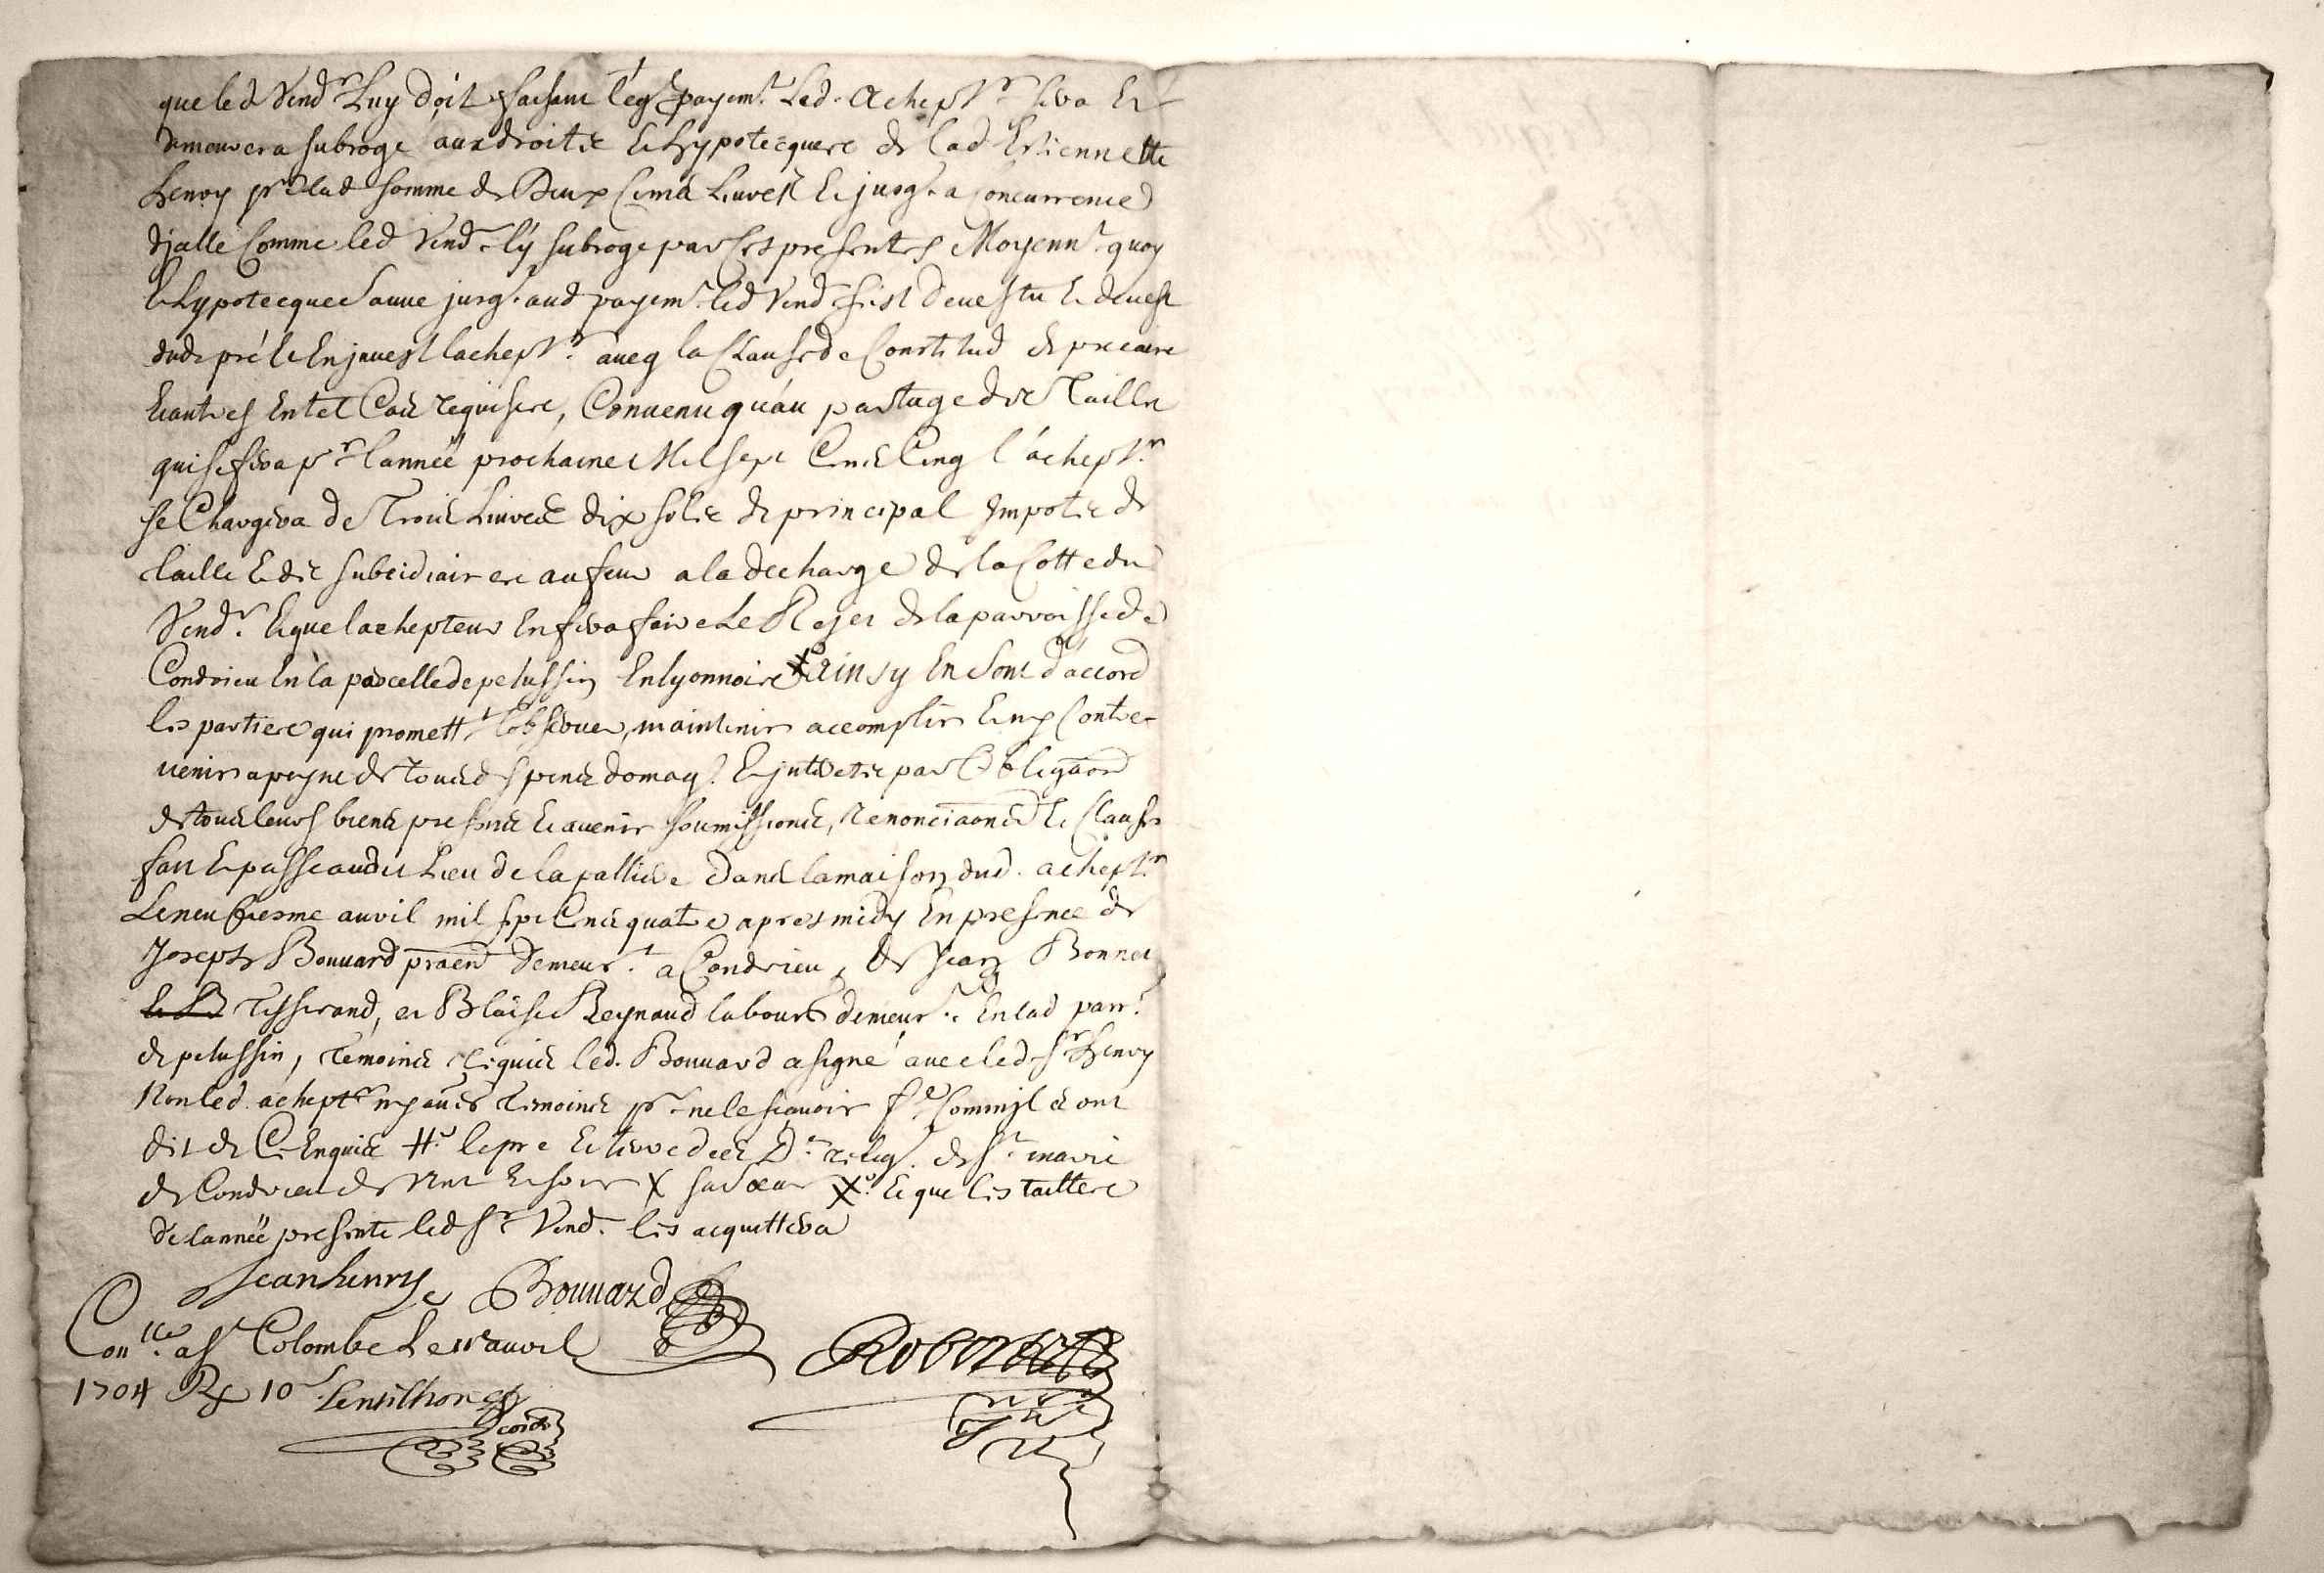 que led Vend.r Luy doit faisant leq.l payem.t Led. achept.r sera Et
demeurera subrogé aux droits & hypotecques de lad Estiennette
henry p.r lad somme de Deux Cents Livres & jusq.s a Concurrence
dicelle Comme led Vend.r ly subroge par Ces presentes Moyenn.t quoy
& hypotecque sauve jusq.s aud payem.t led Vend.r s'est devestu & devest
dud. pré & En jnvest lachept.r aveq la Clause de Constitud de precaire
& autres En tel Cas requises, Convenu qu'au partage des Tailles
qui se fera p.r lannée prochaine Mil sept Cents Cinq l'achept.r
se Chargera de Trois Livres dix sols de principal Impots de
taille & des subcidiaires au feur a la decharge de la Cotte du
Vend.r & que lachepteur En fera faire Le Rejet de la parroisse de
Condrieu En la parcelle de pelussin En lyonnois X ainsy En Sont d'accord
les parties qui promett.t lobserver, maintenir accomplir & ny Contre-
venir a peyne de tous despens domag.s & jnterets par Obligaon
de tous leurs biens presents & avenir soumissions, renonciaons & Clauses
fait & passé audit Lieu de la valliere dans la maison dud. achept.r
Le neufviesme avril mil sept Cents quatre apres midy En presence de
Joseph Bouvard praen demeur.t a Condrieu, de Jean Bonnet
tisserand, et Blaise Reynaud labour.r demeur.t En lad parr.e
de pelussin, Temoins requis led. Bouvard a signé avec led. s.r henry
Non led. achept.r ny autres Temoins p.r ne le scavoir f.e Comm'jls ont
dit de Ce Enquis
de Condrieu X sa soeur X & que les tailles
de lannée presente led s.r Vend.r les acquittera
Jean henry Bouvard
Con.lle a s.te Colombe Le 11 avril
1704 Rx 10 s.